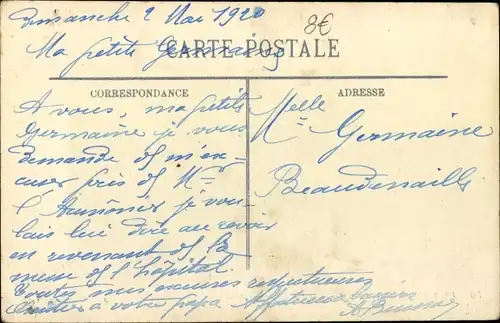 Dimanche 2 Mai 1920
8€
Ma petite Germaine
CARTE POSTALE
CORRESPONDANCE
ADRESSE
A vous, ma petite
Germaine je vous
demande de m'ex-
cuser près de Mr
l'Aumônier je vou-
lais lui dire au revoir
en revenant de la
messe de l'hôpital.
Toutes mes excuses respectueuses
à votre papa Affectueux baisers
Melle
Germaine